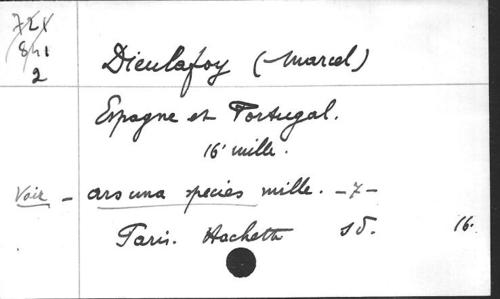 72X
841
2
Dieulafoy (Marcel)
Espagne et Portugal.
16' mille.
Voir - ars una species mille. -7-
Paris. Hachette sd. 16.